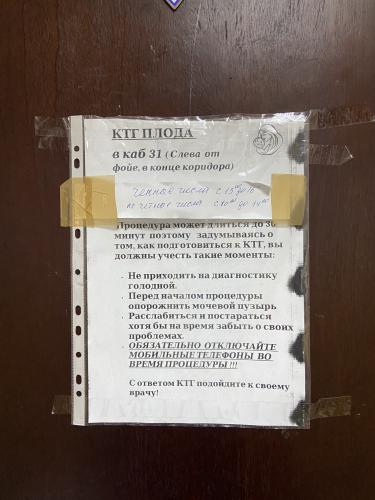 КТГ ПЛОДА
в каб 31 (Слева от
фойе, в конце коридора)
числа с 15
числа с 10⁰⁰ до 14⁰⁰
Процедура может длиться до 30
минут поэтому задумываясь о
том, как подготовиться к КТГ, вы
должны учесть такие моменты:
. Не приходить на диагностику
голодной.
. Перед началом процедуры
опорожнить мочевой пузырь
. Расслабиться и постараться
хотя бы на время забыть о своих
проблемах.
. ОБЯЗАТЕЛЬНО ОТКЛЮЧАЙТЕ
МОБИЛЬНЫЕ ТЕЛЕФОНЫ ВО
ВРЕМЯ ПРОЦЕДУРЫ !!!
С ответом КТГ подойдите к своему
врачу!